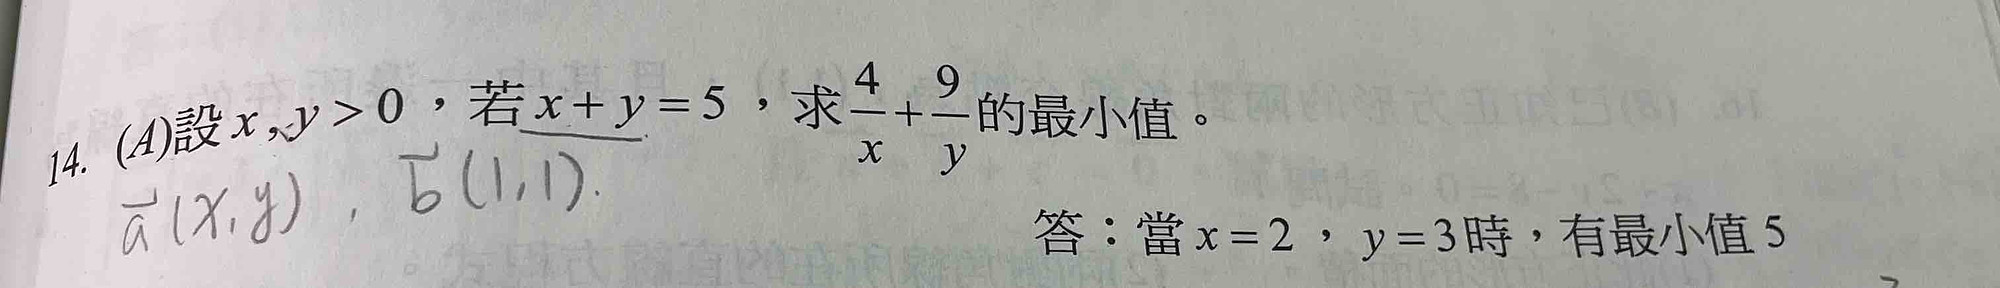 14. (A)設 x, y > 0，若 x + y = 5，求 4/x + 9/y 的最小值。
a⃗ (x, y), b⃗ (1, 1).
答：當 x = 2，y = 3 時，有最小值 5